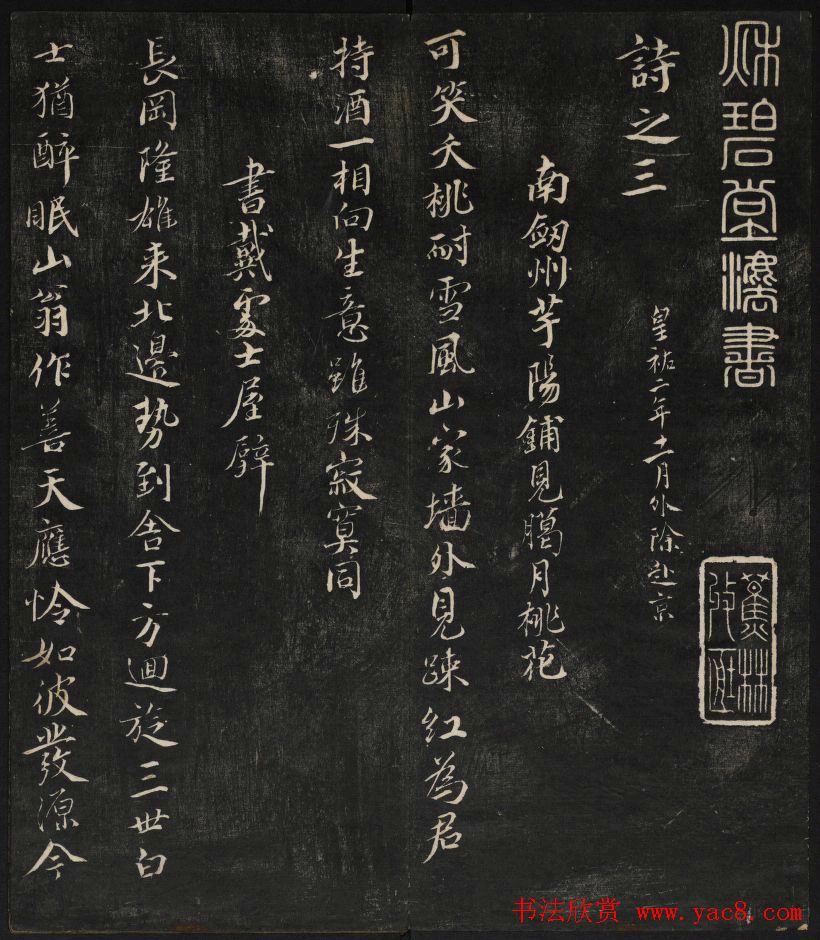 秋碧堂法書
蕉林收藏
詩之三
皇祐二年十一月外除赴京
南劔州芋陽鋪見臈月桃花
可笑夭桃耐雪風山家墻外見踈紅為君
持酒一相向生意雖殊寂寞同
書戴處士屋壁
長岡隆雄来北邊勢到舎下方迴旋三世白
士猶醉眠山翁作善天應怜如彼發源今
书法欣赏 www.yac8.com